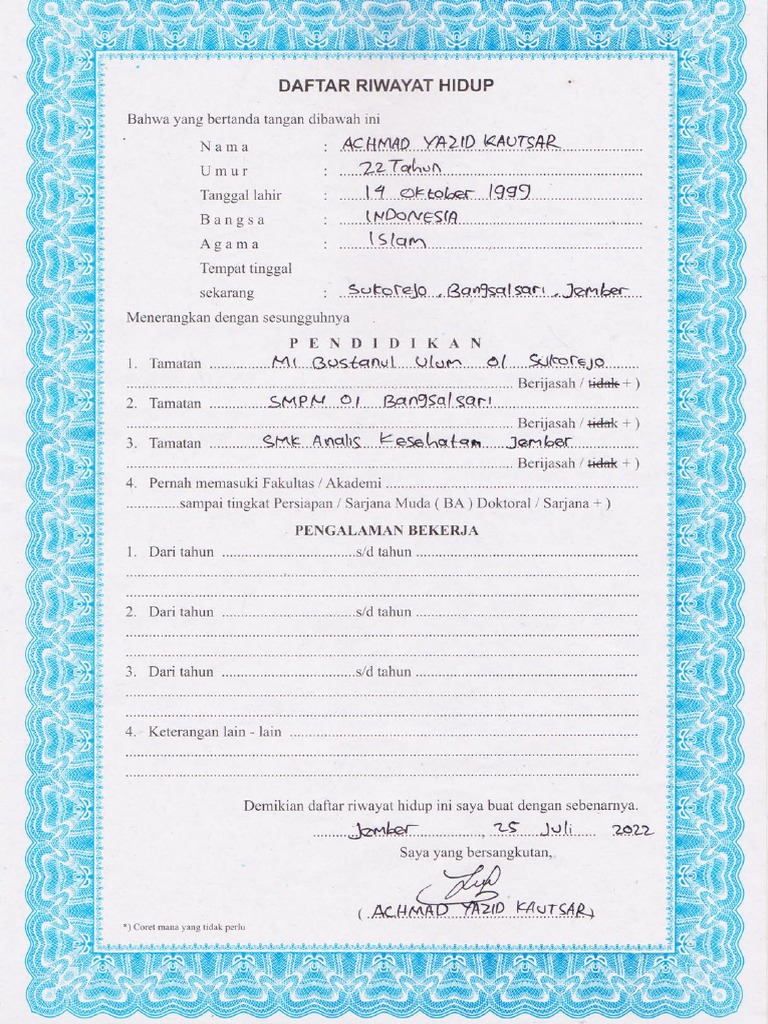 DAFTAR RIWAYAT HIDUP
Bahwa yang bertanda tangan dibawah ini
N a m a : ACHMAD YAZID KAUTSAR
U m u r : 22 Tahun
Tanggal lahir : 14 Oktober 1999
B a n g s a : INDONESIA
A g a m a : Islam
Tempat tinggal
sekarang : Sukorejo, Bangsalsari, Jember
Menerangkan dengan sesungguhnya
P E N D I D I K A N
1. Tamatan MI Bustanul Ulum 01 Sukorejo
Berijasah / tidak + )
2. Tamatan SMPM 01 Bangsalsari
Berijasah / tidak + )
3. Tamatan SMK Analis Kesehatan Jember
Berijasah / tidak + )
4. Pernah memasuki Fakultas / Akademi
sampai tingkat Persiapan / Sarjana Muda ( BA ) Doktoral / Sarjana + )
PENGALAMAN BEKERJA
1. Dari tahun s/d tahun
2. Dari tahun s/d tahun
3. Dari tahun s/d tahun
4. Keterangan lain - lain
Demikian daftar riwayat hidup ini saya buat dengan sebenarnya.
Jember, 25 Juli 2022
Saya yang bersangkutan,
( ACHMAD YAZID KAUTSAR)
*) Coret mana yang tidak perlu